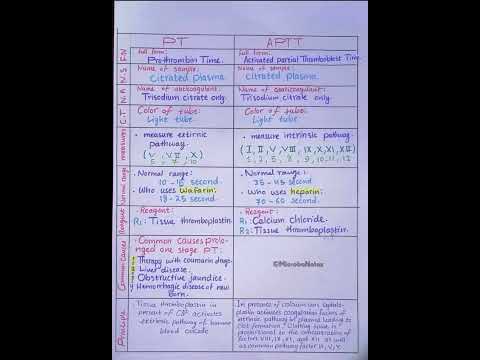 PT
APTT
F.N
full form:
Prothrombin Time.
full form:
Activated partial Thromboblast Time
N.S
Name of sample:
Citrated plasma.
Name of sample:
citrated plasma.
N.A
Name of anticoagulant:
Trisodium citrate only.
Name of anticoagulant:
Trisodium citrate only.
C.T
Color of tube:
Light tube
Color of tube:
Light tube
measures
• measure extirnic
pathway.
(V, VII, X)
5, 7, 10
• measure intrinsic pathway.
(I, II, V, VIII, IX, X, XI, XII)
1, 2, 5, 8, 9, 10, 11, 12
Normal range
• Normal range:
10 - 15 second.
• Who uses Wafarin:
18 - 25 second.
• Normal range:
35 - 45 second.
• Who uses heparin:
70 - 60 second.
Reagent
• Reagent:
R1: Tissue thromboplastin.
• Reagent:
R1: Calcium chloride.
R2: Tissue thromboplastin.
Common Causes
• Common causes prolo-
nged one stage PT:
Therapy with coumarin drugs.
Liver disease.
Obstructive jaundice.
Hemorrhagic disease of new
born.
©MicrobeNotes
Principle
Tissue thromboplastin in
present of activates
extrinsic pathway of human
blood cascade
In presence of calcium ions
activates coagulation factors of
intrinsic pathway in plasma leading to
clot formation. Clotting time is
proportional to the concentration of
factors VIII, IX, XI, and XII as well
as common pathway factor II, V, X